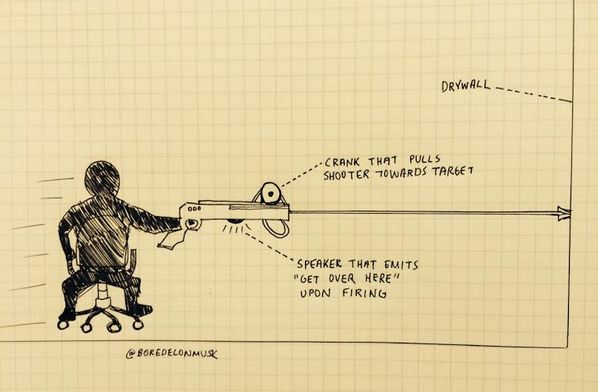 DRYWALL
CRANK THAT PULLS
SHOOTER TOWARDS TARGET
SPEAKER THAT EMITS
"GET OVER HERE"
UPON FIRING
@BOREDELONMUSK